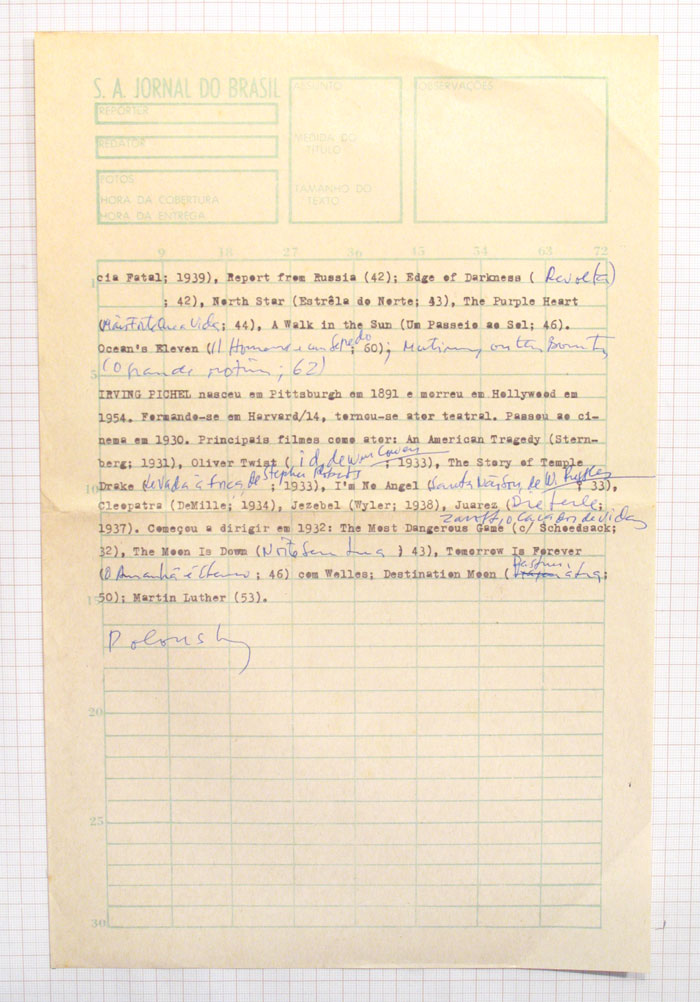 S. A. JORNAL DO BRASIL
REPÓRTER
REDATOR
FOTOS
HORA DA COBERTURA
HORA DA ENTREGA
ASSUNTO
MEDIDA DO
TÍTULO
TAMANHO DO
TEXTO
OBSERVAÇÕES
9 18 27 36 45 54 63 72
1
cia Fatal; 1939), Report from Russia (42); Edge of Darkness ( Revolta)
; 42), North Star (Estrêla do Norte; 43), The Purple Heart
(Mais Forte que a Vida; 44), A Walk in the Sun (Um Passeio ao Sol; 46).
Ocean's Eleven (11 Homens e um Segredo; 60); Mutiny on the Bounty
5
(O grande motim; 62)
IRVING PICHEL nasceu em Pittsburgh em 1891 e morreu em Hollywood em
1954. Formando-se em Harvard/14, tornou-se ator teatral. Passou ao ci-
nema em 1930. Principais filmes como ator: An American Tragedy (Stern-
berg; 1931), Oliver Twist ( id, de Wm Cowen ; 1933), The Story of Temple
10
Drake (Levada à força, de Stephen Roberts ; 1933), I'm No Angel (Santa Não Sou, de W. Ruggles ; 33),
Cleopatra (DeMille; 1934), Jezebel (Wyler; 1938), Juarez (Dieterle;
1937). Começou a dirigir em 1932: The Most Dangerous Game (c/ Schoedsack; Zaroff, o Caçador de Vidas
32), The Moon Is Down (Noite Sem Lua ; 43), Tomorrow Is Forever
(O Amanhã é Eterno ; 46) com Welles; Destination Moon ( à Lua;
15
50); Martin Luther (53).
Polonsky
20
25
30